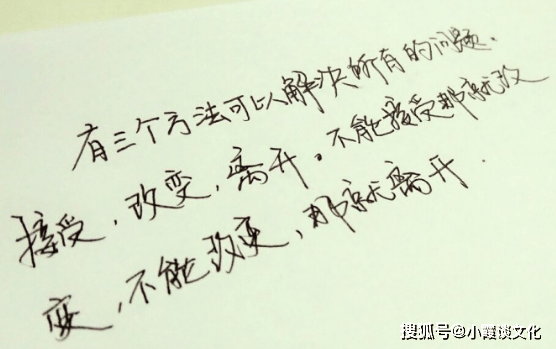 有三个方法可以解决所有的问题.
接受,改变,离开。不能接受那就改
变,不能改变,那就离开.
搜狐号@小霞谈文化